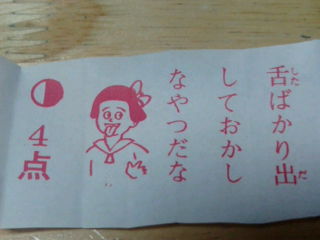 舌ばかり出
しておかし
なやつだな
4点